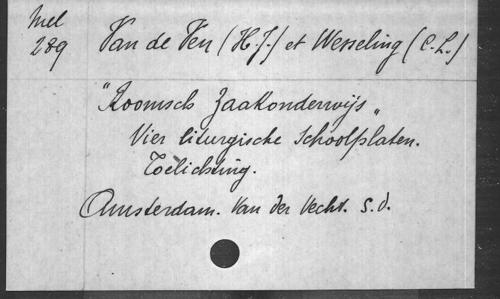 Mel
289
Van de Ven (H.J.) et Wesseling (C.L.)
"Roomsch Zaakonderwijs"
Vier liturgische Schoolplaten.
Toelichting.
Amsterdam. Van der Vecht. s.d.